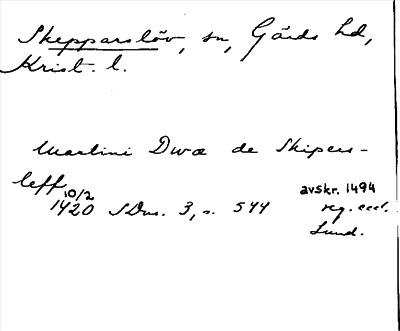 Skepparslöv, sn, Gärds hd,
Krist. l.
Martini Dwæ de Skipers-
leff
10/2
1420 SDns. 3, s. 544
avskr. 1494
reg. eccl.
Lund.